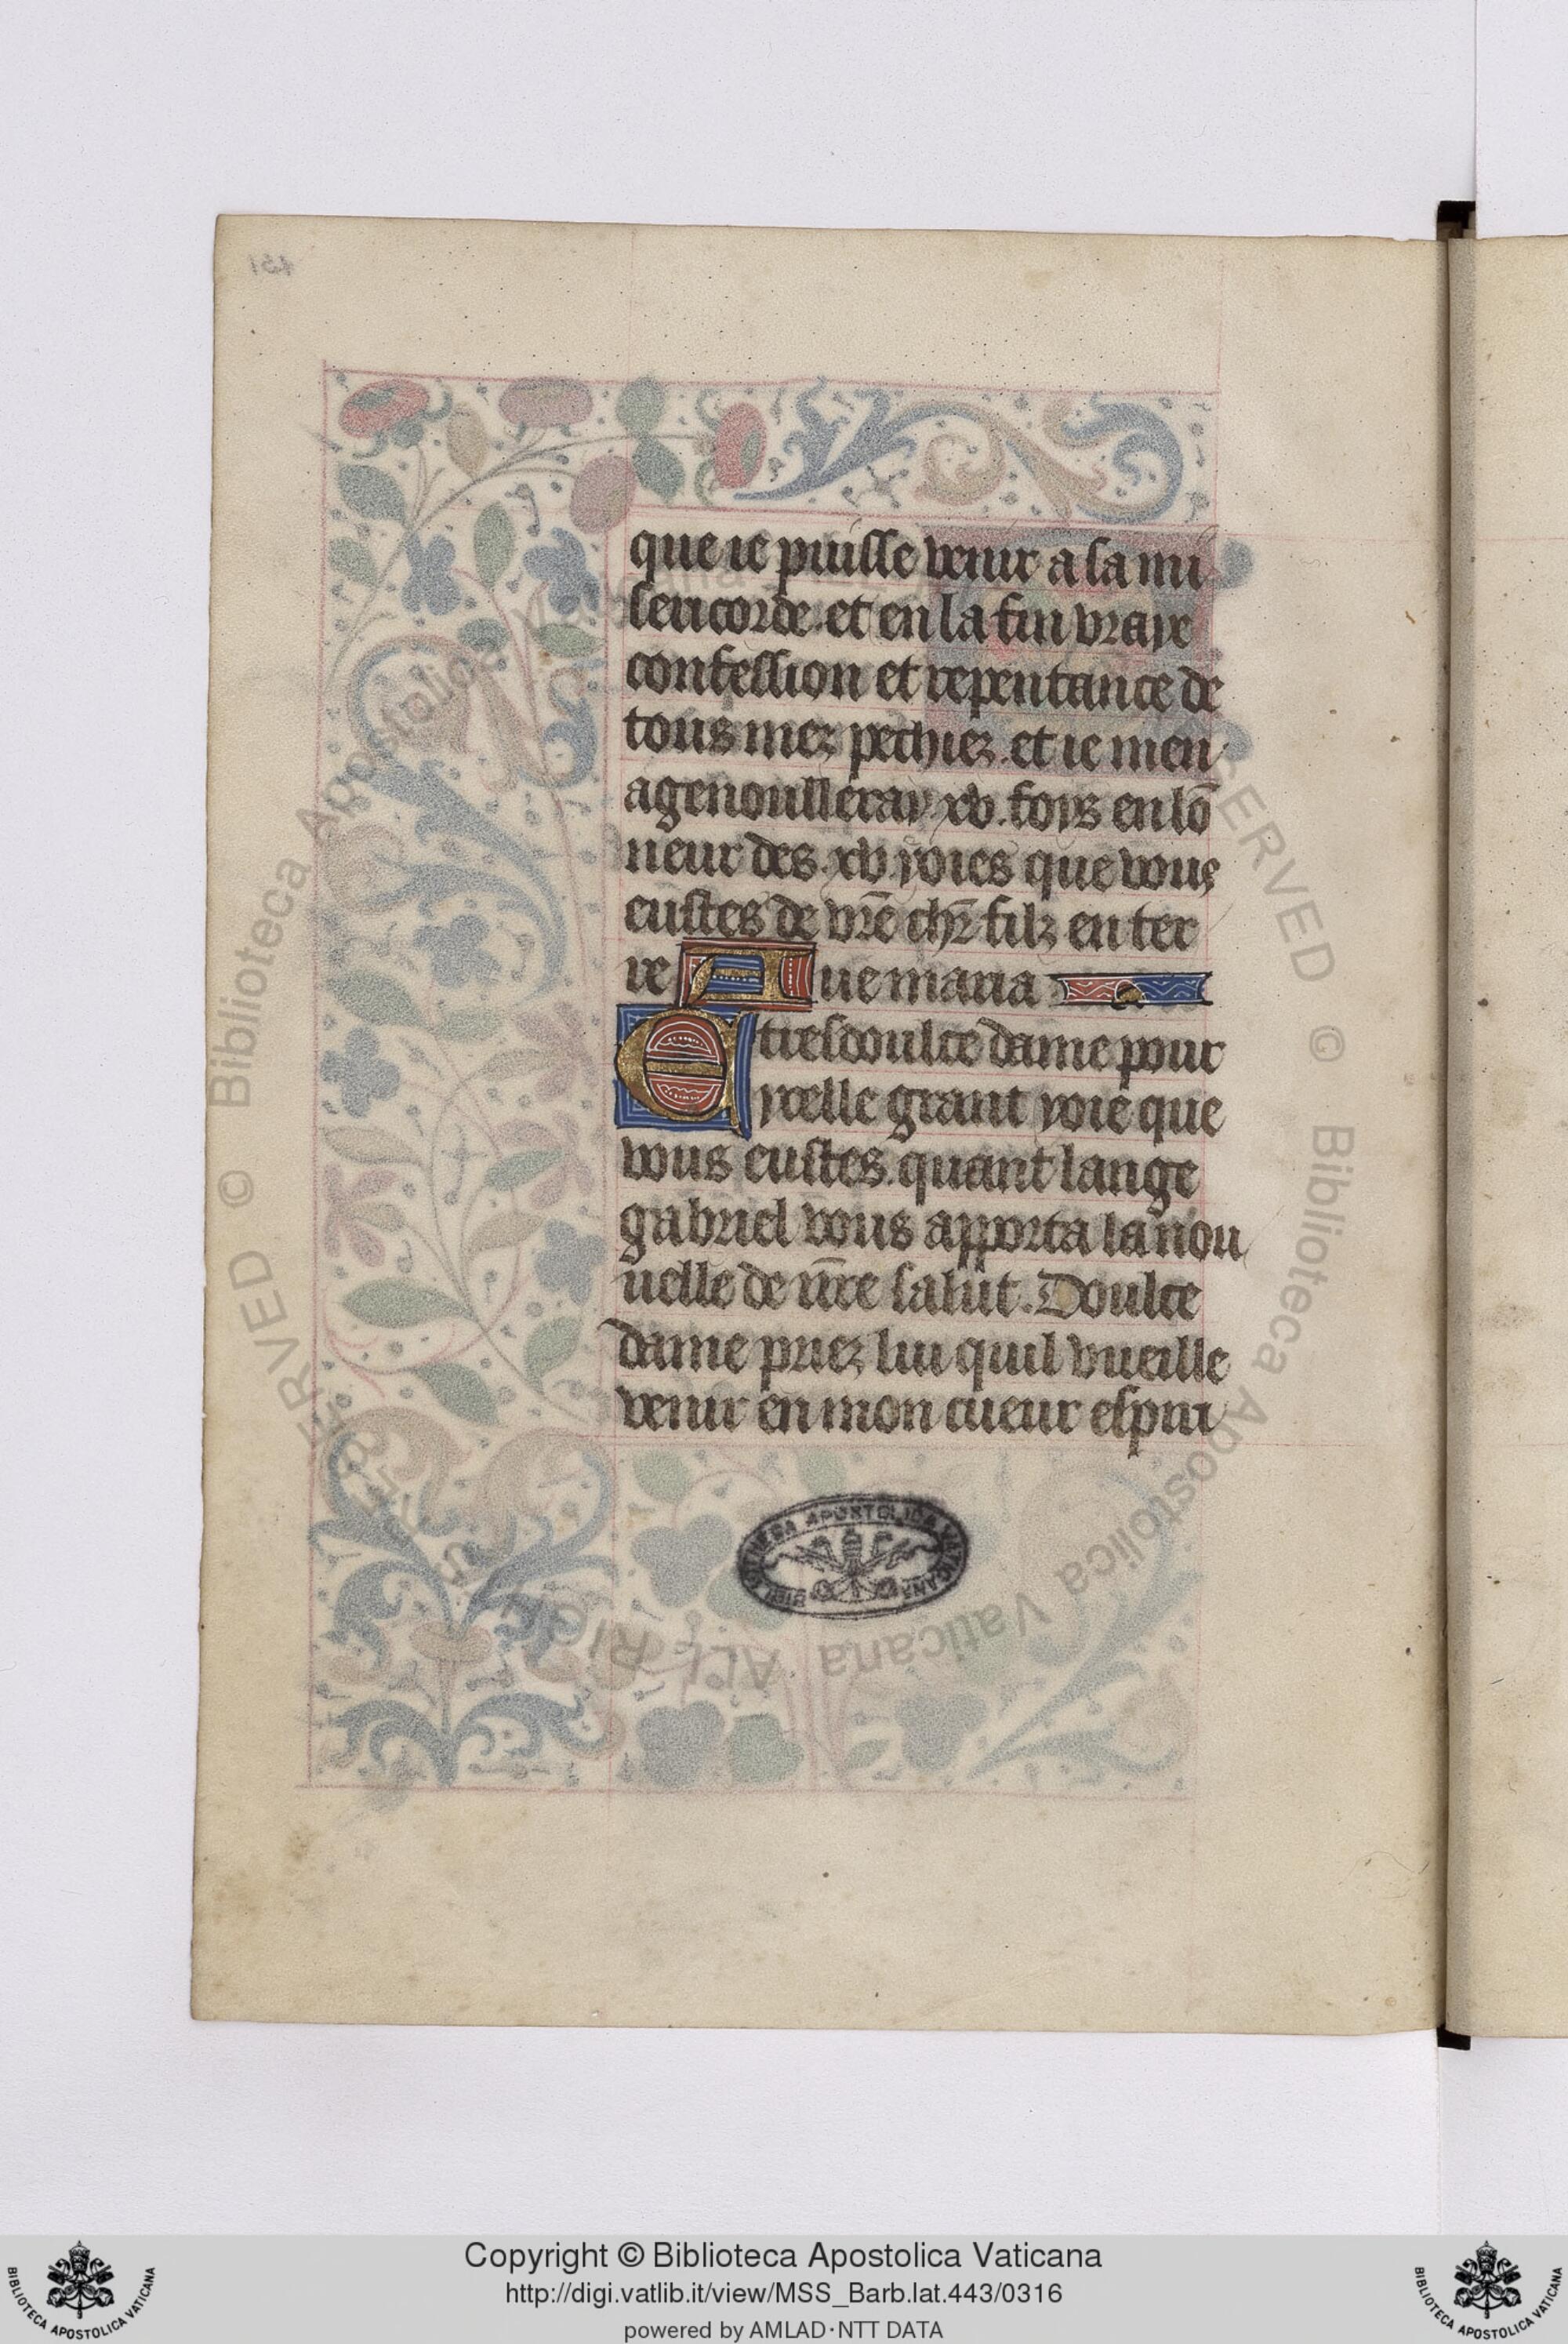 que ie puisse venir a sa mi
sericorde. et en la fin vraye
confession et repentance de
tous mez pechiez. et ie men
agenoulleray. xv. foys en lō
neur des. xv. ioies que vous
eustes de vr̄e ch̄r filz en ter
re Aue maria
E tresdoulce dame pour
ycelle grant ioie que
vous eustes. quant lange
gabriel vous apporta la nou
uelle de nr̄e salut. Doulce
dame priez lui quil vueille
venir en mon cueur espiri
BIBLIOTHECA APOSTOLICA VATICANA
Copyright © Biblioteca Apostolica Vaticana
http://digi.vatlib.it/view/MSS_Barb.lat.443/0316
powered by AMLAD·NTT DATA
BIBLIOTECA APOSTOLICA VATICANA
BIBLIOTECA APOSTOLICA VATICANA